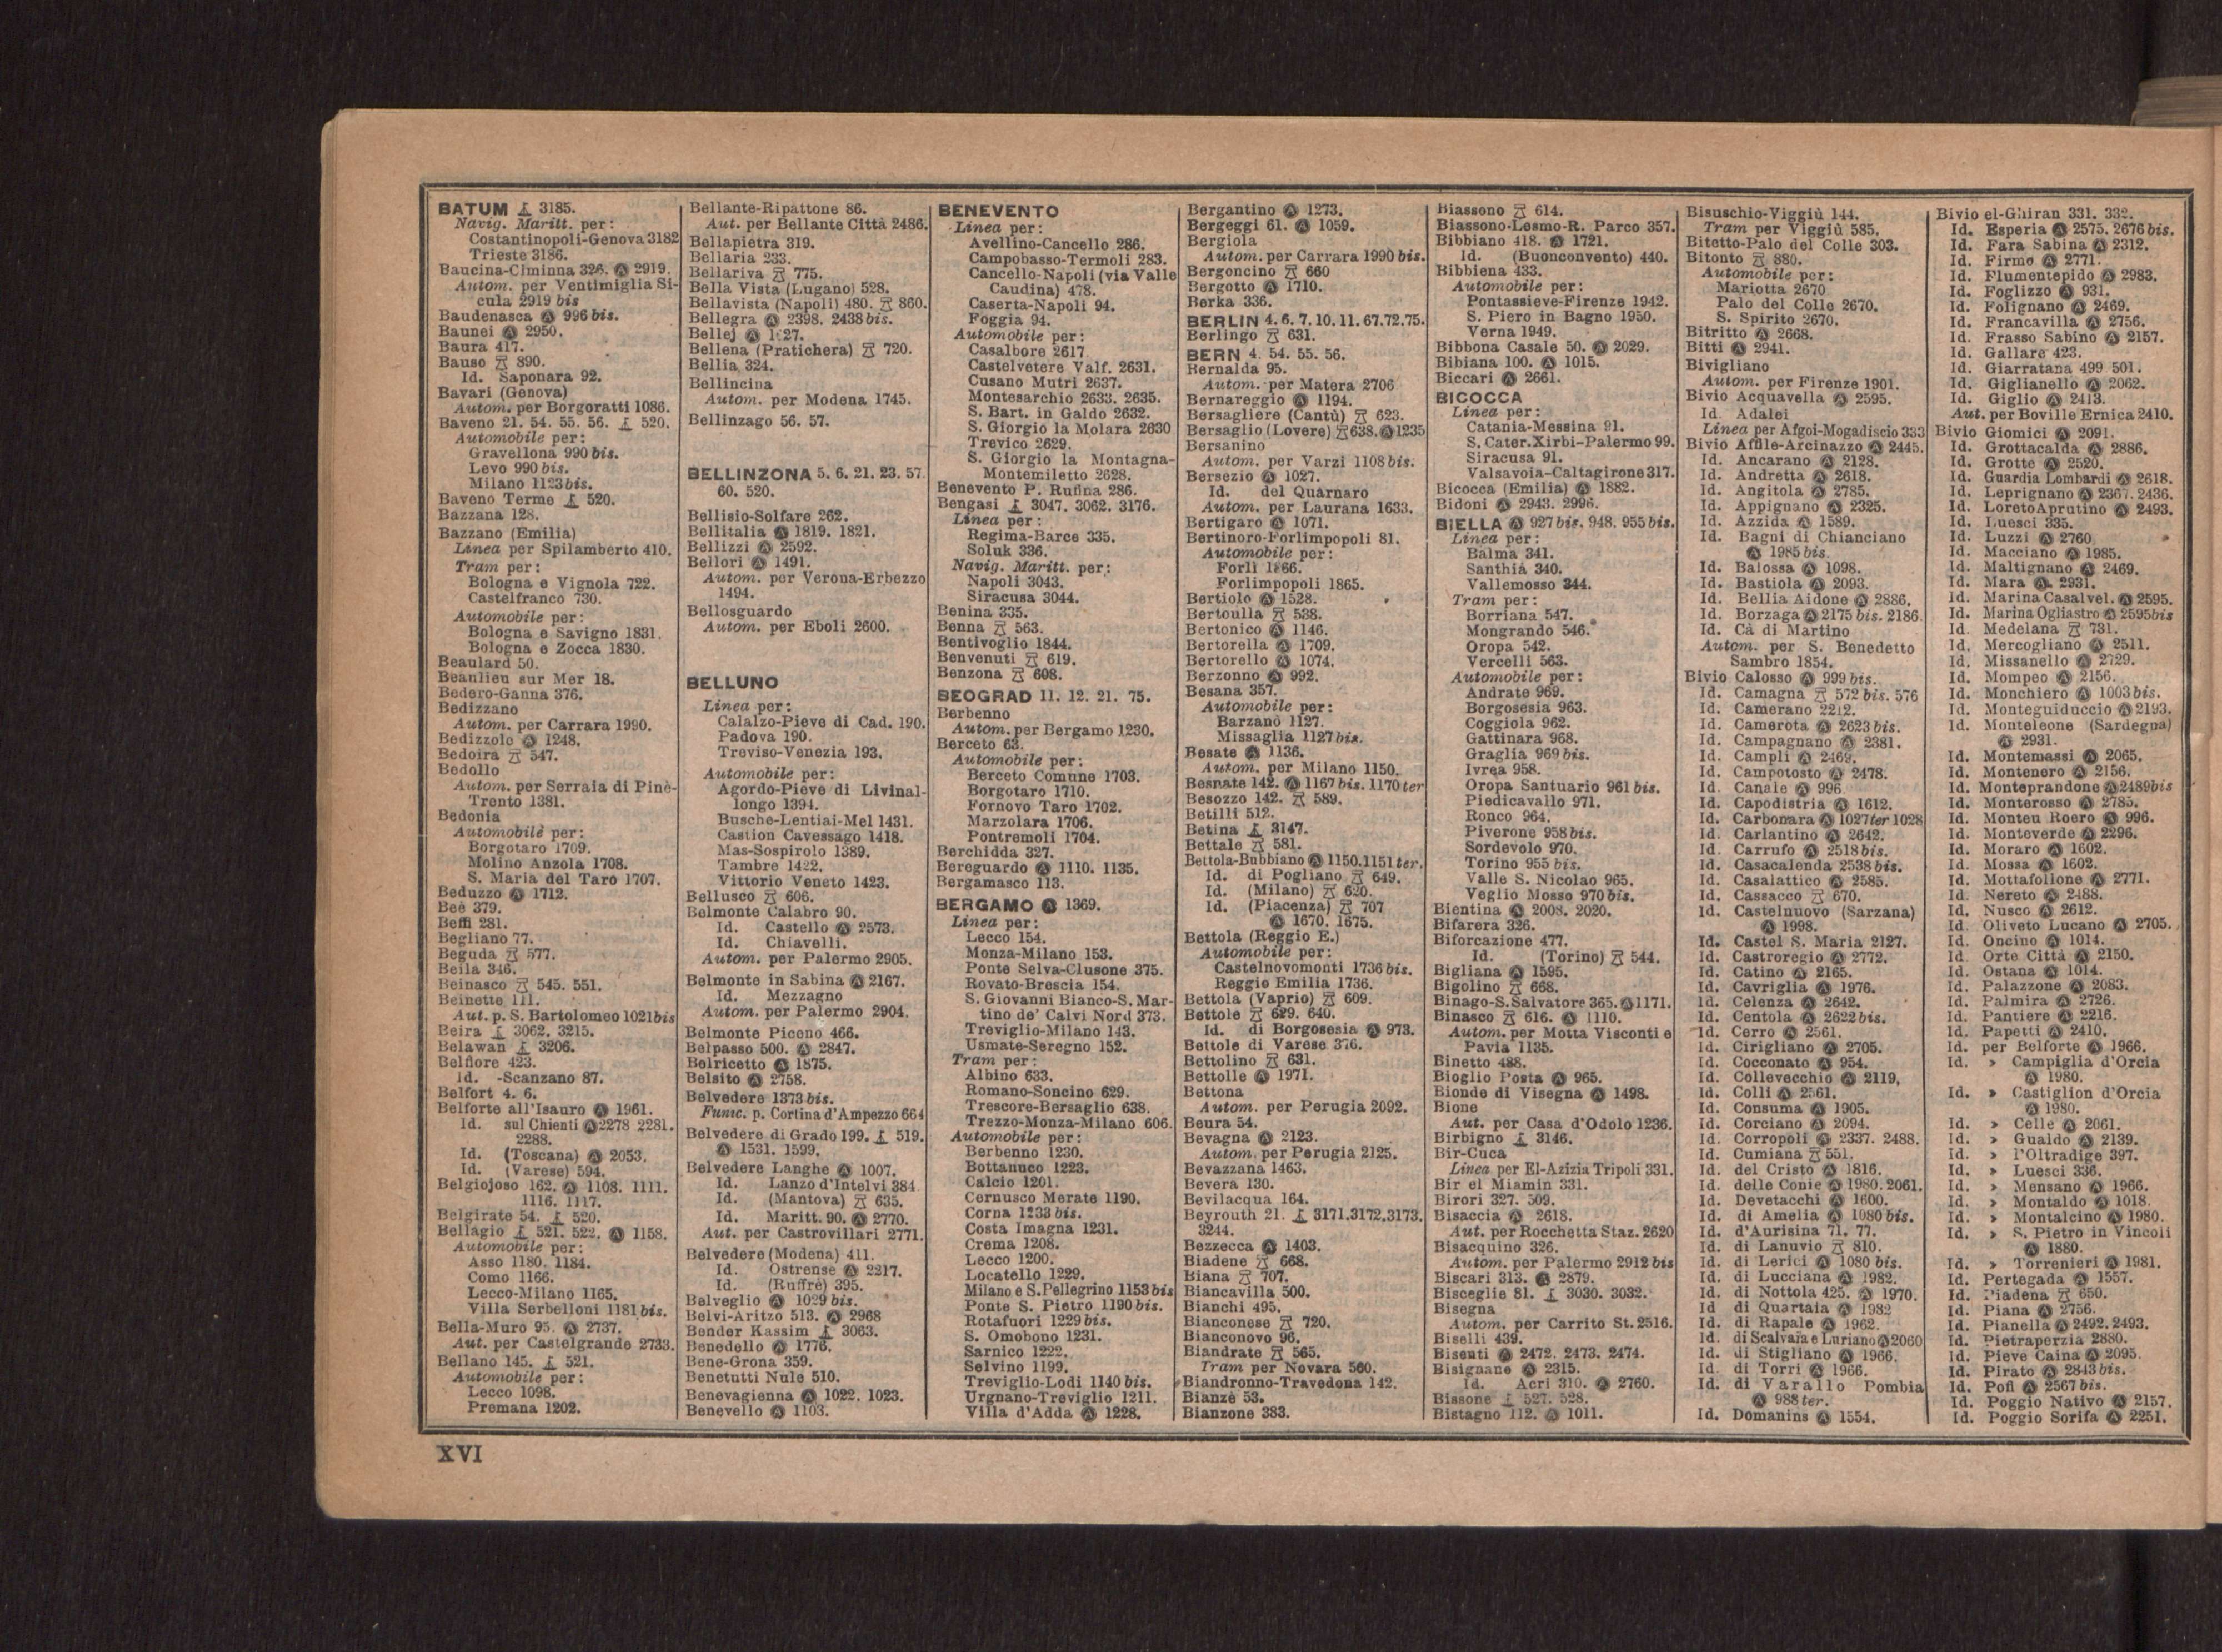 BATUM 3185.
Navig. Maritt. per:
Costantinopoli-Genova 3182
Trieste 3186.
Baucina-Ciminna 326. Ⓐ 2919.
Autom. per Ventimiglia Si-
cula 2919 bis
Baudenasca Ⓐ 996 bis.
Baunei Ⓐ 2950.
Baura 417.
Bauso 890.
Id. Saponara 92.
Bavari (Genova)
Autom. per Borgoratti 1086.
Baveno 21. 54. 55. 56. 520.
Automobile per:
Gravellona 990 bis.
Levo 990 bis.
Milano 1123 bis.
Baveno Terme 520.
Bazzana 128.
Bazzano (Emilia)
Linea per Spilamberto 410.
Tram per:
Bologna e Vignola 722.
Castelfranco 730.
Automobile per:
Bologna e Savigno 1831.
Bologna e Zocca 1830.
Beaulard 50.
Beaulieu sur Mer 18.
Bedero-Ganna 376.
Bedizzano
Autom. per Carrara 1990.
Bedizzole Ⓐ 1248.
Bedoira 547.
Bedollo
Autom. per Serraia di Pinè-
Trento 1381.
Bedonia
Automobile per:
Borgotaro 1709.
Molino Anzola 1708.
S. Maria del Taro 1707.
Beduzzo Ⓐ 1712.
Beè 379.
Beffi 281.
Begliano 77.
Beguda 577.
Beila 346.
Beinasco 545. 551.
Beinette 111.
Aut. p. S. Bartolomeo 1021bis
Beira 3062. 3215.
Belawan 3206.
Belfiore 423.
Id. -Scanzano 87.
Belfort 4. 6.
Belforte all'Isauro Ⓐ 1961.
Id. sul Chienti Ⓐ 2278 2281.
2288.
Id. (Toscana) Ⓐ 2053.
Id. (Varese) 594.
Belgiojoso 162. Ⓐ 1108. 1111.
1116. 1117.
Belgirate 54. 520.
Bellagio 521. 522. Ⓐ 1158.
Automobile per:
Asso 1180. 1184.
Como 1166.
Lecco-Milano 1165.
Villa Serbelloni 1181 bis.
Bella-Muro 95. Ⓐ 2737.
Aut. per Castelgrande 2733.
Bellano 145. 521.
Automobile per:
Lecco 1098.
Premana 1202.
Bellante-Ripattone 86.
Aut. per Bellante Città 2486.
Bellapietra 319.
Bellaria 233.
Bellariva 775.
Bella Vista (Lugano) 528.
Bellavista (Napoli) 480. 860.
Bellegra Ⓐ 2398. 2438 bis.
Bellej Ⓐ
Bellena (Pratichera) 720.
Bellia 324.
Bellincina
Autom. per Modena 1745.
Bellinzago 56. 57.
BELLINZONA 5. 6. 21. 23. 57.
60. 520.
Bellisio-Solfare 262.
Bellitalia Ⓐ 1819. 1821.
Bellizzi Ⓐ 2592.
Bellori Ⓐ 1491.
Autom. per Verona-Erbezzo
1494.
Bellosguardo
Autom. per Eboli 2600.
BELLUNO
Linea per:
Calalzo-Pieve di Cad. 190.
Padova 190.
Treviso-Venezia 193.
Automobile per:
Agordo-Pieve di Livinal-
longo 1394.
Busche-Lentiai-Mel 1431.
Castion Cavessago 1418.
Mas-Sospirolo 1389.
Tambre 1422.
Vittorio Veneto 1423.
Bellusco 606.
Belmonte Calabro 90.
Id. Castello Ⓐ 2573.
Id. Chiavelli.
Autom. per Palermo 2905.
Belmonte in Sabina Ⓐ 2167.
Id. Mezzagno
Autom. per Palermo 2904.
Belmonte Piceno 466.
Belpasso 500. Ⓐ 2847.
Belricetto Ⓐ 1875.
Belsito Ⓐ 2758.
Belvedere 1373 bis.
Funic. p. Cortina d'Ampezzo 664
Belvedere di Grado 199. 519.
Ⓐ 1531. 1599.
Belvedere Langhe Ⓐ 1007.
Id. Lanzo d'Intelvi 384
Id. (Mantova) 635.
Id. Maritt. 90. Ⓐ 2770.
Aut. per Castrovillari 2771.
Belvedere (Modena) 411.
Id. Ostrense Ⓐ 2217.
Id. (Ruffrè) 395.
Belveglio Ⓐ 1029 bis.
Belvi-Aritzo 513. Ⓐ 2968
Bender Kassim 3063.
Benedello Ⓐ 1776.
Bene-Grona 359.
Benetutti Nule 510.
Benevagienna Ⓐ 1022. 1023.
Benevello Ⓐ 1103.
BENEVENTO
Linea per:
Avellino-Cancello 286.
Campobasso-Termoli 283.
Cancello-Napoli (via Valle
Caudina) 478.
Caserta-Napoli 94.
Foggia 94.
Automobile per:
Casalbore 2617
Castelvetere Valf. 2631.
Cusano Mutri 2637.
Montesarchio 2633. 2635.
S. Bart. in Galdo 2632.
S. Giorgio la Molara 2630
Trevico 2629.
S. Giorgio la Montagna-
Montemiletto 2628.
Benevento P. Rufina 286.
Bengasi 3047. 3062. 3176.
Linea per:
Regima-Barce 335.
Soluk 336.
Navig. Maritt. per:
Napoli 3043.
Siracusa 3044.
Benina 335.
Benna 563.
Bentivoglio 1844.
Benvenuti 619.
Benzona 608.
BEOGRAD 11. 12. 21. 75.
Berbenno
Autom. per Bergamo 1230.
Berceto 63.
Automobile per:
Berceto Comune 1703.
Borgotaro 1710.
Fornovo Taro 1702.
Marzolara 1706.
Pontremoli 1704.
Berchidda 327.
Bereguardo Ⓐ 1110. 1135.
Bergamasco 113.
BERGAMO Ⓐ 1369.
Linea per:
Lecco 154.
Monza-Milano 153.
Ponte Selva-Clusone 375.
Rovato-Brescia 154.
S. Giovanni Bianco-S. Mar-
tino de' Calvi Nord 373.
Treviglio-Milano 143.
Usmate-Seregno 152.
Tram per:
Albino 633.
Romano-Soncino 629.
Trescore-Bersaglio 638.
Trezzo-Monza-Milano 606.
Automobile per:
Berbenno 1230.
Bottanuco 1223.
Calcio 1201.
Cernusco Merate 1190.
Corna 1233 bis.
Costa Imagna 1231.
Crema 1208.
Lecco 1200.
Locatello 1229.
Milano e S. Pellegrino 1153 bis
Ponte S. Pietro 1190 bis.
Rotafuori 1229 bis.
S. Omobono 1231.
Sarnico 1222.
Selvino 1199.
Treviglio-Lodi 1140 bis.
Urgnano-Treviglio 1211.
Villa d'Adda Ⓐ 1228.
Bergantino Ⓐ 1273.
Bergeggi 61. Ⓐ 1059.
Bergiola
Autom. per Carrara 1990 bis.
Bergoncino 660
Bergotto Ⓐ 1710.
Berka 336.
BERLIN 4. 6. 7. 10. 11. 67. 72. 75.
Berlingo 631.
BERN 4. 54. 55. 56.
Bernalda 95.
Autom. per Matera 2706
Bernareggio Ⓐ 1194.
Bersagliere (Cantù) 623.
Bersaglio (Lovere) 638. Ⓐ 1235
Bersanino
Autom. per Varzi 1108 bis.
Bersezio Ⓐ 1027.
Id. del Quarnaro
Autom. per Laurana 1633.
Bertigaro Ⓐ 1071.
Bertinoro-Forlimpopoli 81.
Automobile per:
Forlì 1866.
Forlimpopoli 1865.
Bertiolo Ⓐ 1528.
Bertoulla 538.
Bertonico Ⓐ 1146.
Bertorella Ⓐ 1709.
Bertorello Ⓐ 1074.
Berzonno Ⓐ 992.
Besana 357.
Automobile per:
Barzanò 1127.
Missaglia 1127 bis.
Besate Ⓐ 1136.
Autom. per Milano 1150.
Besnate 142. Ⓐ 1167 bis. 1170 ter
Besozzo 142. 589.
Betilli 512.
Betina 3147.
Bettale 581.
Bettola-Bubbiano Ⓐ 1150. 1151 ter.
Id. di Pogliano 649.
Id. (Milano) 620.
Id. (Piacenza) 707
Ⓐ 1670. 1675.
Bettola (Reggio E.)
Automobile per:
Castelnovomonti 1736 bis.
Reggio Emilia 1736.
Bettola (Vaprio) 609.
Bettole 629. 640.
Id. di Borgosesia Ⓐ 973.
Bettole di Varese 376.
Bettolino 631.
Bettolle Ⓐ 1971.
Bettona
Autom. per Perugia 2092.
Beura 54.
Bevagna Ⓐ 2123.
Autom. per Perugia 2125.
Bevazzana 1463.
Bevera 130.
Bevilacqua 164.
Beyrouth 21. 3171. 3172. 3173.
3244.
Bezzecca Ⓐ 1403.
Biadene 668.
Biana 707.
Biancavilla 500.
Bianchi 495.
Bianconese 720.
Bianconovo 96.
Biandrate 565.
Tram per Novara 560.
Biandronno-Travedona 142.
Bianzè 53.
Bianzone 383.
Biassono 614.
Biassono-Lesmo-R. Parco 357.
Bibbiano 418. Ⓐ 1721.
Id. (Buonconvento) 440.
Bibbiena 433.
Automobile per:
Pontassieve-Firenze 1942.
S. Piero in Bagno 1950.
Verna 1949.
Bibbona Casale 50. Ⓐ 2029.
Bibiana 100. Ⓐ 1015.
Biccari Ⓐ 2661.
BICOCCA
Linea per:
Catania-Messina 91.
S. Cater. Xirbi-Palermo 99.
Siracusa 91.
Valsavoia-Caltagirone 317.
Bicocca (Emilia) Ⓐ 1882.
Bidoni Ⓐ 2943. 2996.
BIELLA Ⓐ 927 bis. 948. 955 bis.
Linea per:
Balma 341.
Santhià 340.
Vallemosso 344.
Tram per:
Borriana 547.
Mongrando 546.
Oropa 542.
Vercelli 563.
Automobile per:
Andrate 969.
Borgosesia 963.
Coggiola 962.
Gattinara 968.
Graglia 969 bis.
Ivrea 958.
Oropa Santuario 961 bis.
Piedicavallo 971.
Ronco 964.
Piverone 958 bis.
Sordevolo 970.
Torino 955 bis.
Valle S. Nicolao 965.
Veglio Mosso 970 bis.
Bientina Ⓐ 2008. 2020.
Bifarera 326.
Biforcazione 477.
Id. (Torino) 544.
Bigliana Ⓐ 1595.
Bigolino 668.
Binago-S. Salvatore 365. Ⓐ 1171.
Binasco 616. Ⓐ 1110.
Autom. per Motta Visconti e
Pavia 1135.
Binetto 488.
Bioglio Posta Ⓐ 965.
Bionde di Visegna Ⓐ 1498.
Bione
Aut. per Casa d'Odolo 1236.
Birbigno 3146.
Bir-Cuca
Linea per El-Azizia Tripoli 331.
Bir el Miamin 331.
Birori 327. 509.
Bisaccia Ⓐ 2618.
Aut. per Rocchetta Staz. 2620
Bisacquino 326.
Autom. per Palermo 2912 bis
Biscari 313. Ⓐ 2879.
Bisceglie 81. 3030. 3032.
Bisegna
Autom. per Carrito St. 2516.
Biselli 439.
Bisenti Ⓐ 2472. 2473. 2474.
Bisignano Ⓐ 2315.
Id. Acri 310. Ⓐ 2760.
Bissone 527. 528.
Bistagno 112. Ⓐ 1011.
Bisuschio-Viggiù 144.
Tram per Viggiù 585.
Bitetto-Palo del Colle 303.
Bitonto 880.
Automobile per:
Mariotta 2670
Palo del Colle 2670.
S. Spirito 2670.
Bitritto Ⓐ 2668.
Bitti Ⓐ 2941.
Bivigliano
Autom. per Firenze 1901.
Bivio Acquavella Ⓐ 2595.
Id. Adalei
Linea per Afgoi-Mogadiscio 333
Bivio Affile-Arcinazzo Ⓐ 2445.
Id. Ancarano Ⓐ 2128.
Id. Andretta Ⓐ 2618.
Id. Angitola Ⓐ 2785.
Id. Appignano Ⓐ 2325.
Id. Azzida Ⓐ 1589.
Id. Bagni di Chianciano
Ⓐ 1985 bis.
Id. Balossa Ⓐ 1098.
Id. Bastiola Ⓐ 2093.
Id. Bellia Aidone Ⓐ 2886.
Id. Borzaga Ⓐ 2175 bis. 2186.
Id. Cà di Martino
Autom. per S. Benedetto
Sambro 1854.
Bivio Calosso Ⓐ 999 bis.
Id. Camagna 572 bis. 576
Id. Camerano 2212.
Id. Camerota Ⓐ 2623 bis.
Id. Campagnano Ⓐ 2381.
Id. Campli Ⓐ 2469.
Id. Campotosto Ⓐ 2478.
Id. Canale Ⓐ 996
Id. Capodistria Ⓐ 1612.
Id. Carbonara Ⓐ 1027ter 1028
Id. Carlantino Ⓐ 2642.
Id. Carrufo Ⓐ 2518 bis.
Id. Casacalenda 2538 bis.
Id. Casalattico Ⓐ 2585.
Id. Cassacco 670.
Id. Castelnuovo (Sarzana)
Ⓐ 1998.
Id. Castel S. Maria 2127.
Id. Castroregio Ⓐ 2772.
Id. Catino Ⓐ 2165.
Id. Cavriglia Ⓐ 1976.
Id. Celenza Ⓐ 2642.
Id. Centola Ⓐ 2622 bis.
Id. Cerro Ⓐ 2561.
Id. Cirigliano Ⓐ 2705.
Id. Cocconato Ⓐ 954.
Id. Collevecchio Ⓐ 2119,
Id. Colli Ⓐ 2561.
Id. Consuma Ⓐ 1905.
Id. Corciano Ⓐ 2094.
Id. Corropoli Ⓐ 2337. 2488.
Id. Cumiana 551.
Id. del Cristo Ⓐ 1816.
Id. delle Conie Ⓐ 1980. 2061.
Id. Devetacchi Ⓐ 1600.
Id. di Amelia Ⓐ 1080 bis.
Id. d'Aurisina 71. 77.
Id. di Lanuvio 810.
Id. di Lerici Ⓐ 1080 bis.
Id. di Lucciana Ⓐ 1982.
Id. di Nottola 425. Ⓐ 1970.
Id di Quartaia Ⓐ 1982
Id. di Rapale Ⓐ 1962.
Id. di Scalvaia e Luriano Ⓐ 2060
Id. di Stigliano Ⓐ 1966.
Id. di Torri Ⓐ 1966.
Id. di Varallo Pombia
Ⓐ 988 ter.
Id. Domanins Ⓐ 1554.
Bivio el-Ghiran 331. 332.
Id. Esperia Ⓐ 2575. 2676 bis.
Id. Fara Sabina Ⓐ 2312.
Id. Firmo Ⓐ 2771.
Id. Flumentepido Ⓐ 2983.
Id. Foglizzo Ⓐ 931.
Id. Folignano Ⓐ 2469.
Id. Francavilla Ⓐ 2756.
Id. Frasso Sabino Ⓐ 2157.
Id. Gallare 423.
Id. Giarratana 499 501.
Id. Giglianello Ⓐ 2062.
Id. Giglio Ⓐ 2413.
Aut. per Boville Ernica 2410.
Bivio Giomici Ⓐ 2091.
Id. Grottacalda Ⓐ 2886.
Id. Grotte Ⓐ 2520.
Id. Guardia Lombardi Ⓐ 2618.
Id. Leprignano Ⓐ 2367. 2436.
Id. Loreto Aprutino Ⓐ 2493.
Id. Luesci 335.
Id. Luzzi Ⓐ 2760
Id. Macciano Ⓐ 1985.
Id. Maltignano Ⓐ 2469.
Id. Mara Ⓐ 2931.
Id. Marina Casalvel. Ⓐ 2595.
Id. Marina Ogliastro Ⓐ 2595bis
Id. Medelana 731.
Id. Mercogliano Ⓐ 2511.
Id. Missanello Ⓐ 2729.
Id. Mompeo Ⓐ 2156.
Id. Monchiero Ⓐ 1003 bis.
Id. Monteguiduccio Ⓐ 2193.
Id. Monteleone (Sardegna)
Ⓐ 2931.
Id. Montemassi Ⓐ 2065.
Id. Montenero Ⓐ 2156.
Id. Monteprandone Ⓐ 2489bis
Id. Monterosso Ⓐ 2785.
Id. Monteu Roero Ⓐ 996.
Id. Monteverde Ⓐ 2296.
Id. Moraro Ⓐ 1602.
Id. Mossa Ⓐ 1602.
Id. Mottafollone Ⓐ 2771.
Id. Nereto Ⓐ 2488.
Id. Nusco Ⓐ 2612.
Id. Oliveto Lucano Ⓐ 2705.
Id. Oncino Ⓐ 1014.
Id. Orte Città Ⓐ 2150.
Id. Ostana Ⓐ 1014.
Id. Palazzone Ⓐ 2083.
Id. Palmira Ⓐ 2726.
Id. Pantiere Ⓐ 2216.
Id. Papetti Ⓐ 2410.
Id. per Belforte Ⓐ 1966.
Id. » Campiglia d'Orcia
Ⓐ 1980.
Id. » Castiglion d'Orcia
Ⓐ 1980.
Id. » Celle Ⓐ 2061.
Id. » Gualdo Ⓐ 2139.
Id. » l'Oltradige 397.
Id. » Luesci 336.
Id. » Mensano Ⓐ 1966.
Id. » Montaldo Ⓐ 1018.
Id. » Montalcino Ⓐ 1980.
Id. » S. Pietro in Vincoli
Ⓐ 1880.
Id. » Torrenieri Ⓐ 1981.
Id. Pertegada Ⓐ 1557.
Id. Piadena 650.
Id. Piana Ⓐ 2756.
Id. Pianella Ⓐ 2492. 2493.
Id. Pietraperzia 2880.
Id. Pieve Caina Ⓐ 2095.
Id. Pirato Ⓐ 2843 bis.
Id. Pofi Ⓐ 2567 bis.
Id. Poggio Nativo Ⓐ 2157.
Id. Poggio Sorifa Ⓐ 2251.
XVI